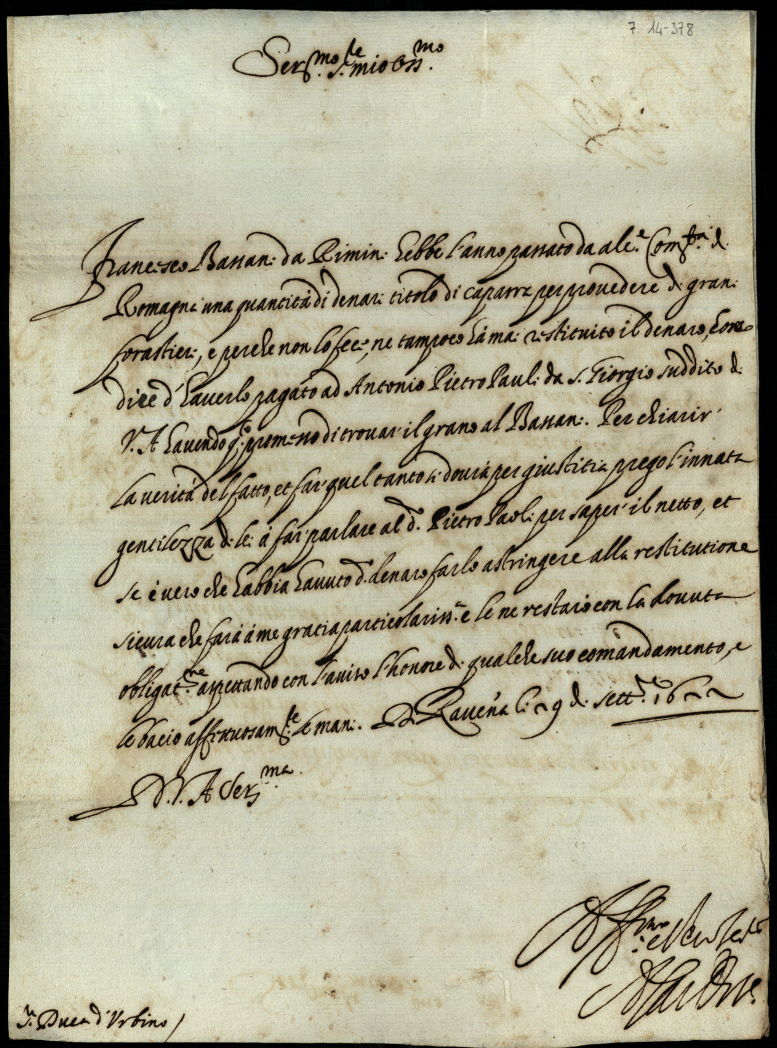 7 14-378
Ser.mo S.re mio Oss.mo
Francesco Bassani da Rimini hebbe l'anno passato da Com.tà di
Romagna una quantità di denari titolo di caparra per provedere di grani
forastieri, e perche non lo fece, ne tampoco hà mai restituito il denaro, con
dire d'haverlo pagato ad Antonio Pietro Pauli da S. Giorgio suddito di
V. A. havendo q.to promesso di trovar' il grano al Bassani. Per chiarir'
la verità del fatto, et far' quel tanto si dovrà per giustitia prego l'innata
gentilezza di lei à far' parlare al d.o Pietro Paoli per saper' il netto, et
se è vero che habbia havuto d.o denaro farlo astringere alla restitutione
sicura che farà à me gratia particolariss.a e le ne restarò con la dovuta
obligat.ne aspettando con l'aviso l'honore di qualche suo comandamento, e
le bacio affettuosam.te le mani. Di Ravenna li 29 di sett.re 1622
Di V. A. Ser.ma
Aff.mo
S.r Duca d'Urbino